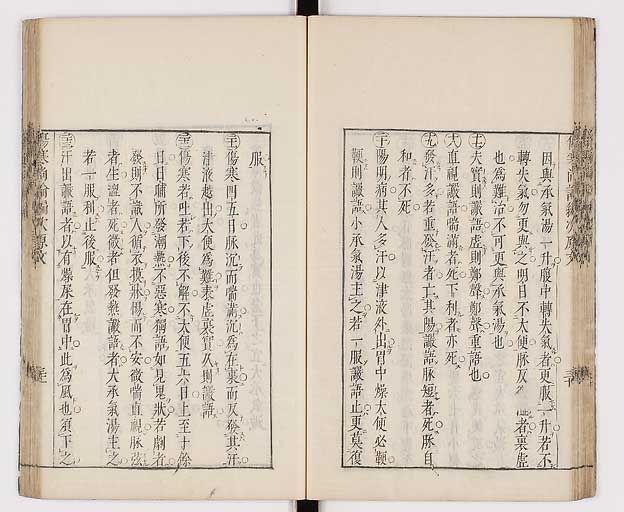 因與承氣湯一升腹中轉失氣者更服一升若不
轉失氣勿更與之明日不大便脉反 者裏虛
也爲難治不可更與承氣湯也
夫實則讝語虛則鄭聲鄭聲重語也
直視讝語喘滿者死下利者亦死
發汗多若重發汗者亡其陽讝語脉短者死脉自
和者不死
陽明病其人多汗以津液外出胃中燥大便必鞕
鞕則讝語小承氣湯主之若一服讝語止更莫復
服
傷寒四五日脉沉而喘滿沉爲在裏而反發其汗
津液越出大便爲難表虛裏實久則讝語
傷寒若吐若下後不解不大便五六日上至十餘
日日晡所發潮熱不惡寒獨語如見鬼狀若劇者
發則不識人循衣摸牀惕而不安微喘直視脉弦
者生濇者死微者但發熱讝語者大承氣湯主之
若一服利止後服
汗出讝語者以有燥屎在胃中此爲風也須下之